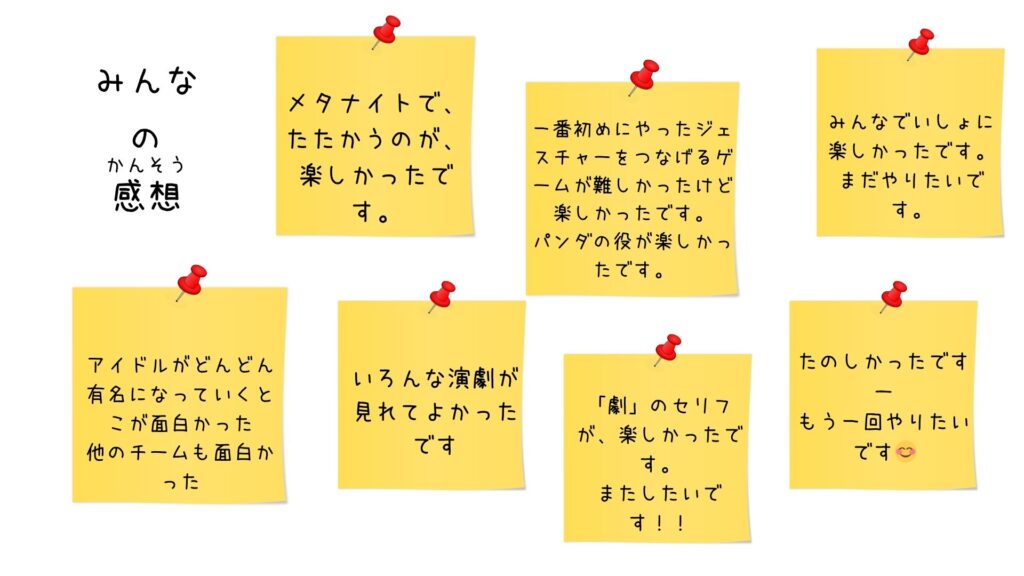 みんな
の
かんそう
感想
メタナイトで、
たたかうのが、
楽しかったで
す。
一番初めにやったジェ
スチャーをつなげるゲ
ームが難しかったけど
楽しかったです。
パンダの役が楽しかっ
たです。
みんなでいしょに
楽しかったです。
まだやりたいで
す。
アイドルがどんどん
有名になっていくと
こが面白かった
他のチームも面白か
った
いろんな演劇が
見れてよかった
です
「劇」のセリフ
が、楽しかったで
す。
またしたいで
す！！
たのしかったです
ー
もう一回やりたい
です😊